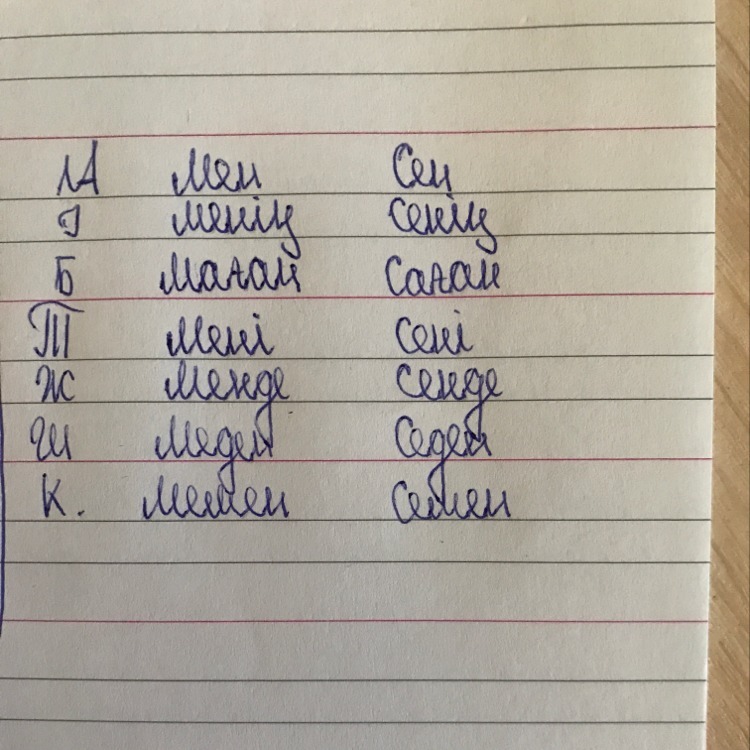 А Мен Сен
І Менің Сенің
Б Маған Саған
Т Мені Сені
Ж Менде Сенде
Ш Меден Седен
К. Мемен Семен